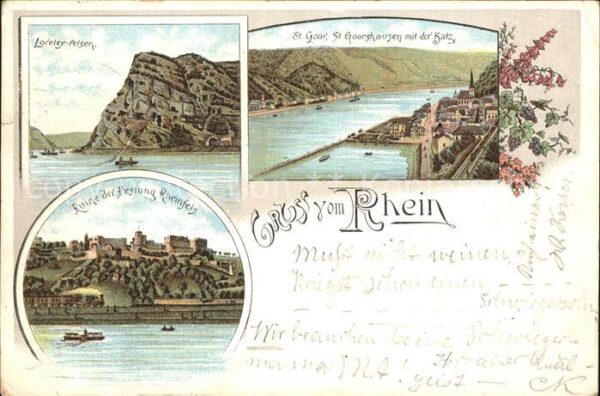 Loreley-Felsen.
St. Goar, St. Goarshausen mit der Katz
Ruine der Festung Rheinfels
Gruss vom Rhein
Musst nicht weinen
Kriegst schon einen
Schwiegersohn.
Wir brauchen keine Schwieger-
mama! Ihr alter Qual-
geist — CK